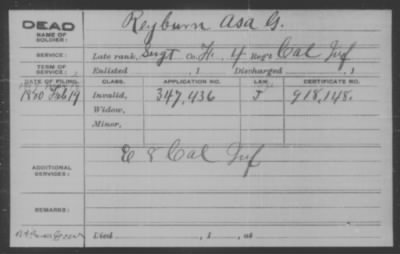 DEAD
NAME OF SOLDIER:
Reyburn Asa G.
SERVICE:
Late rank, Sergt Co. H, 4 Reg't Cal Inf
TERM OF SERVICE:
Enlisted , 1 Discharged , 1
DATE OF FILING.
CLASS.
APPLICATION NO.
LAW.
CERTIFICATE NO.
1880 Feb 19
Invalid,
347,436
J
918,148.
Widow,
Minor,
ADDITIONAL SERVICES:
E 8 Cal Inf
REMARKS:
Died , 1 , at